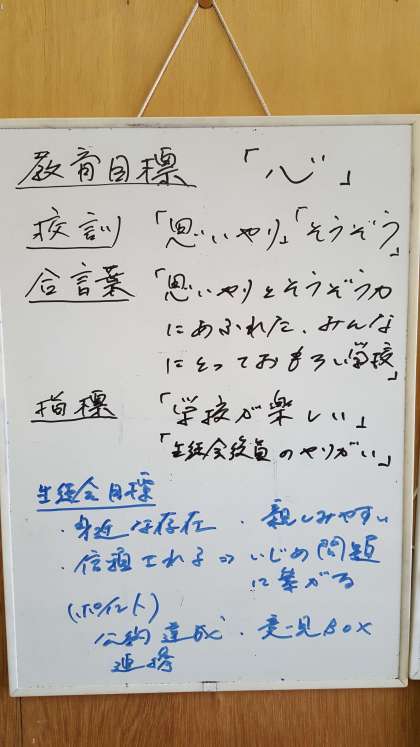 教育目標 「心」
校訓 「思いやり」「そうぞう」
合言葉 「思いやりとそうぞう力
にあふれた、みんな
にとっておもろい学校」
指標 「学校が楽しい」
「生徒会役員のやりがい」
生徒会目標
・身近な存在 ・親しみやすい
・信頼される⇒いじめ問題
に繋がる
(ポイント)
公約達成・意見BOX
連携